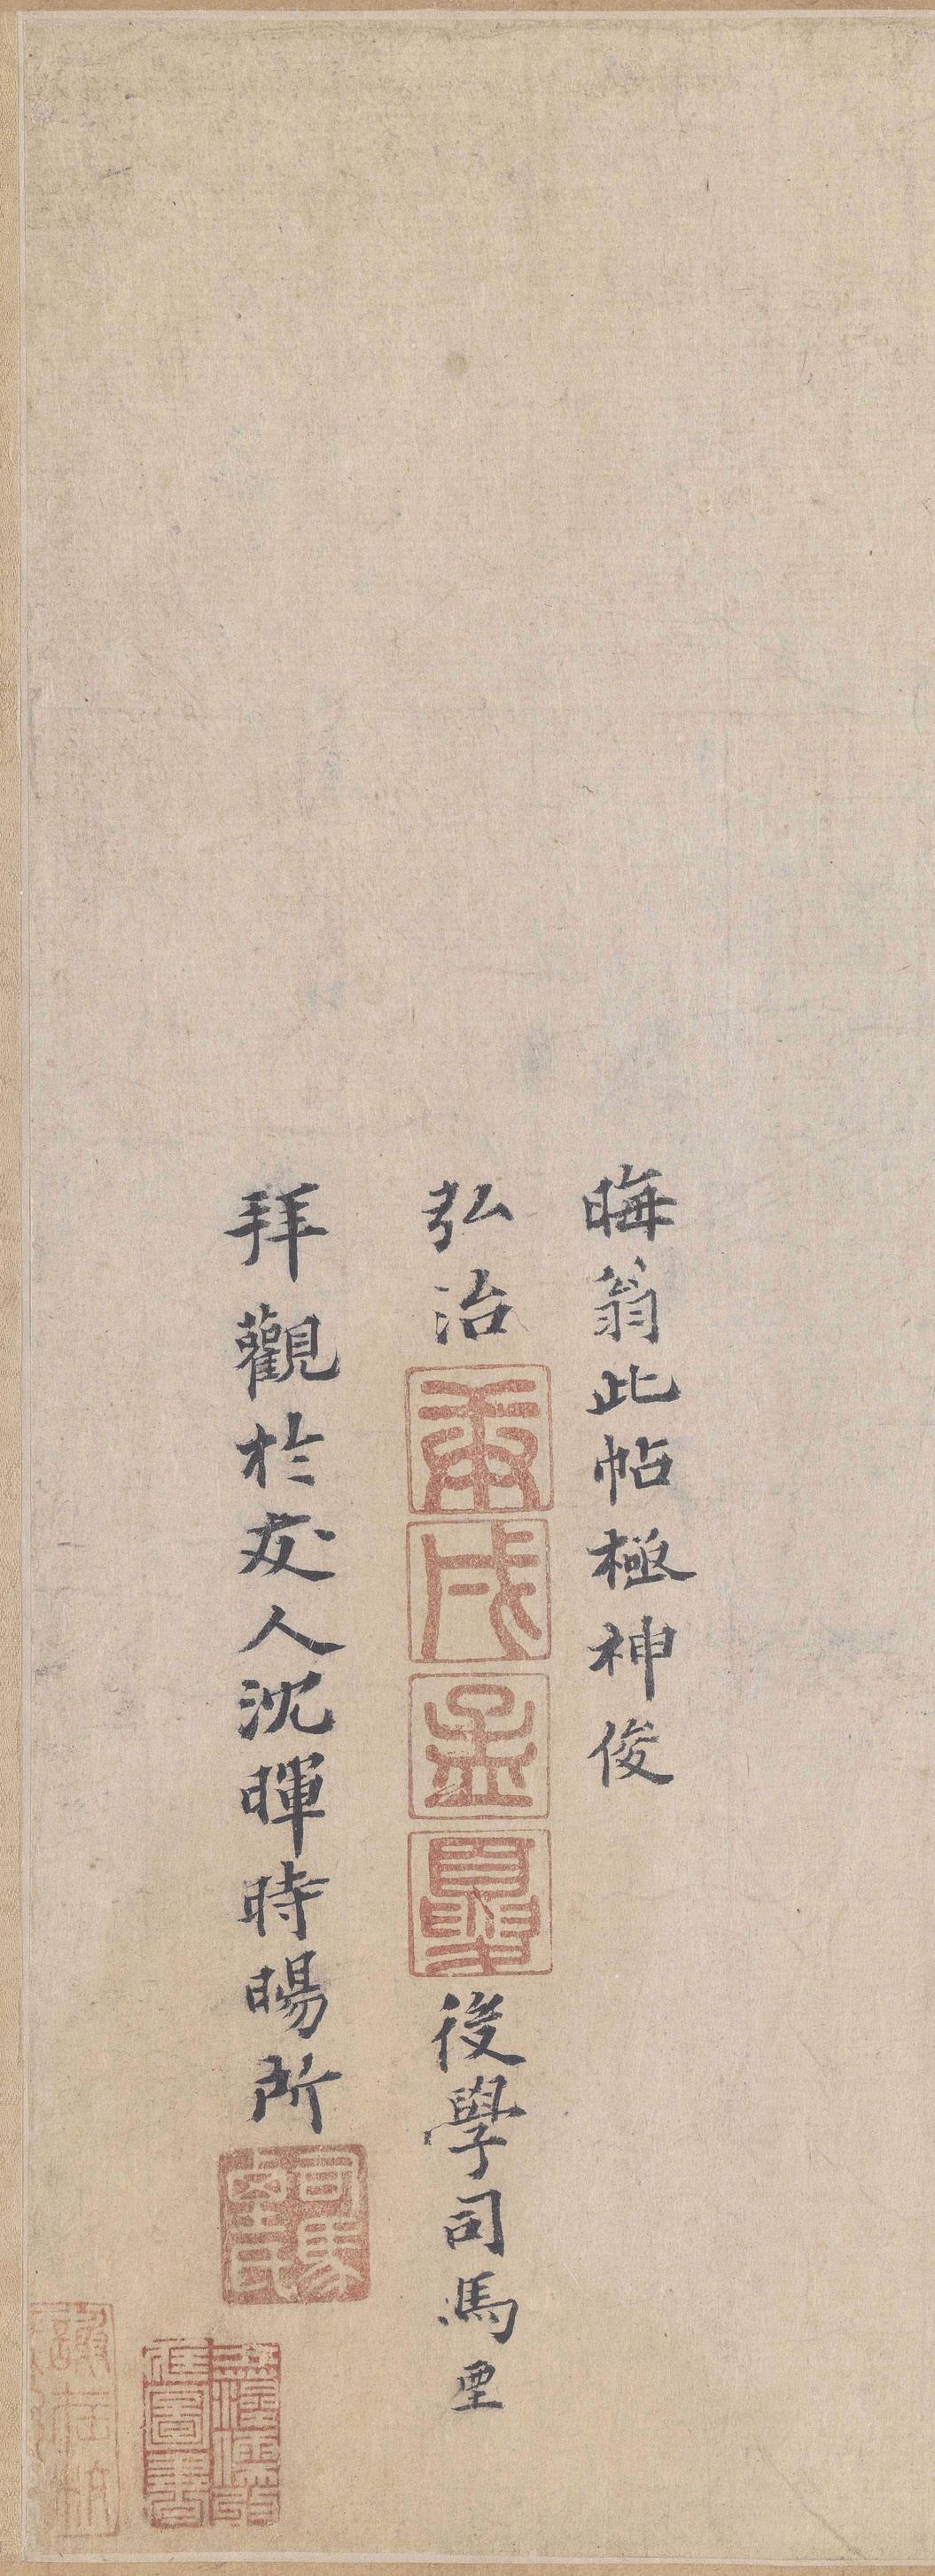 晦翁此帖極神俊
弘治庚戌孟夏後學司馬垔
拜觀於友人沈暉時暘所
司馬
圖書